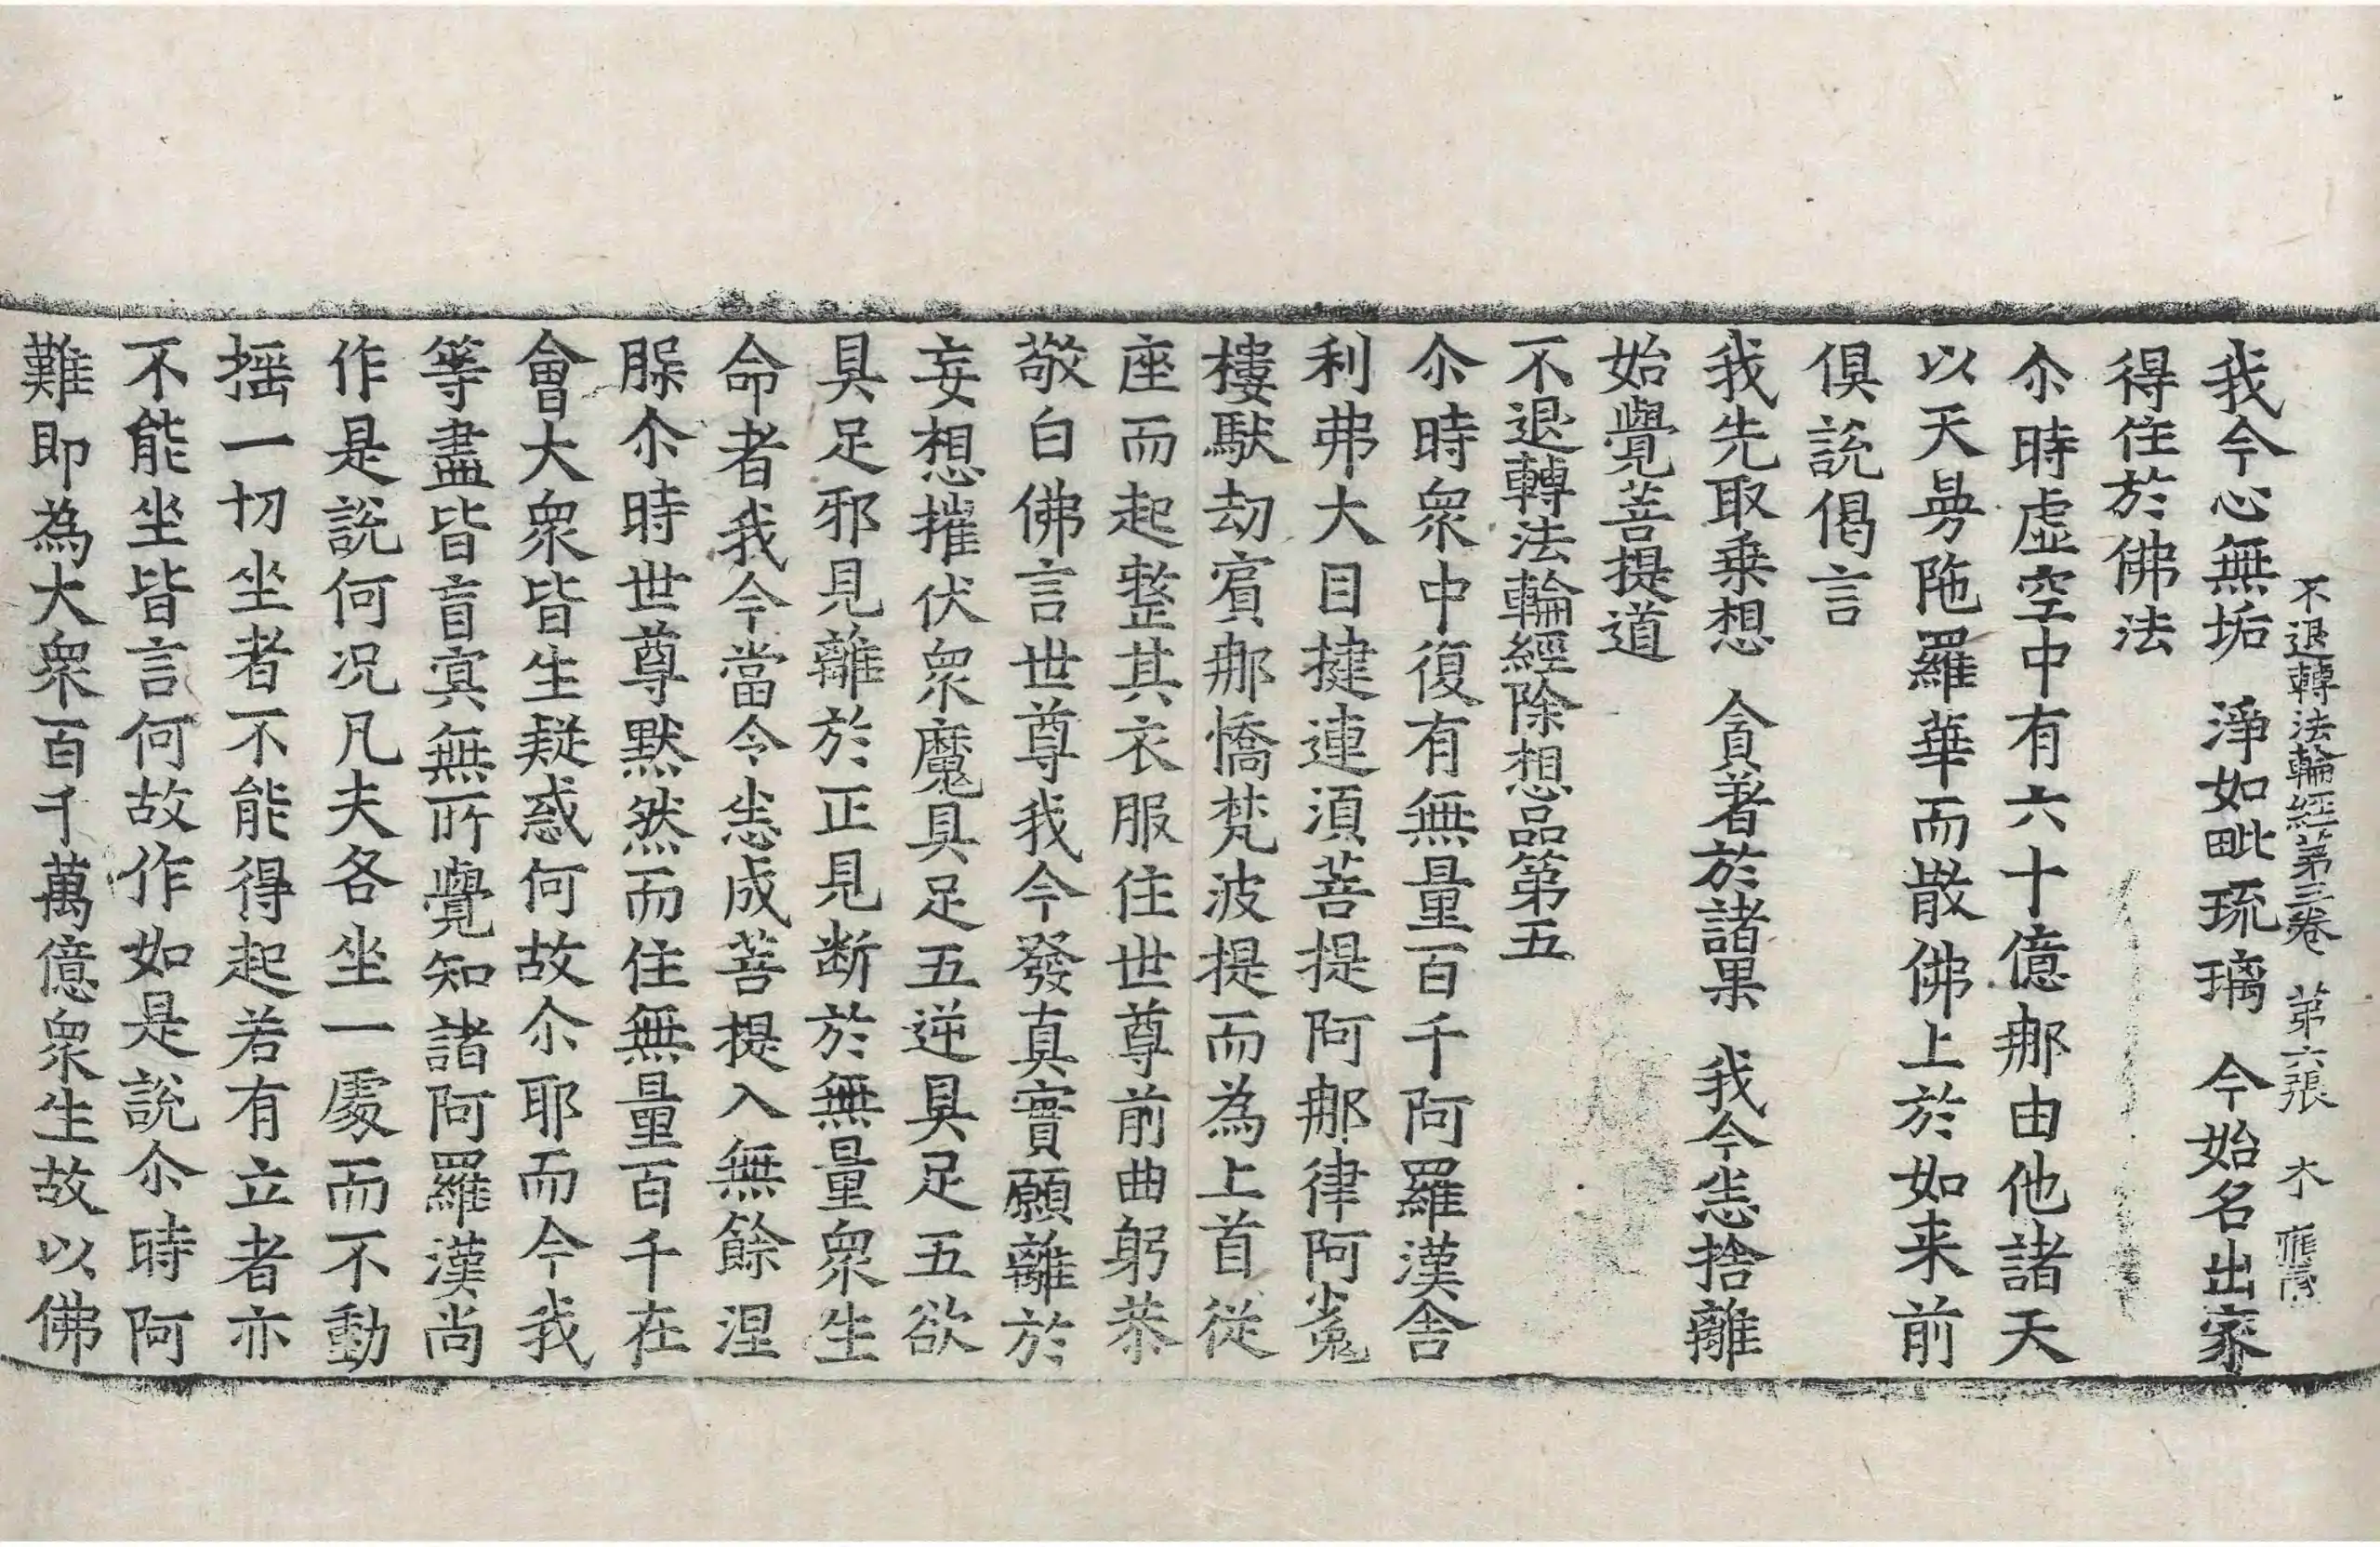 不退轉法輪經苐三卷 苐六張 木
我今心無垢 淨如毗琉璃 今始名出家
得住於佛法
尒時虛空中有六十億那由他諸天
以天㝵陁羅華而散佛上於如来前
俱說偈言
我先取乗想 貪著於諸果 我今悉捨離
始覺菩提道
不退轉法輪經除想品第五
尒時衆中復有無量百千阿羅漢舍
利弗大目揵連湏菩提阿那律阿㝹
樓馱劫賔那憍梵波提而為上首従
座而起整其衣服住世尊前曲躬恭
敬白佛言世尊我今發真實願離於
妄想摧伏衆魔具足五逆具足五欲
具足邪見離於正見断於無量衆生
命者我今當令悉成菩提入無餘涅
槃尒時世尊默然而住無量百千在
會大衆皆生疑惑何故尒耶而今我
等盡皆盲㝠無所覺知諸阿羅漢尚
作是說何况凡夫各坐一處而不動
揺一切坐者不能得起若有立者亦
不能坐皆言何故作如是說尒時阿
難即為大衆百千萬億衆生故以佛